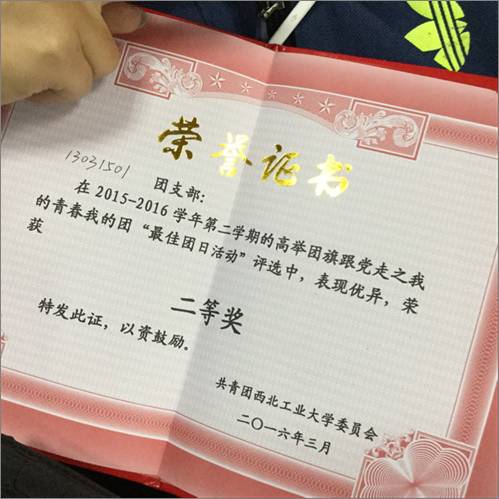 荣誉证书
13031501 团支部:
在2015-2016学年第二学期的高举团旗跟党走之我
的青春我的团“最佳团日活动”评选中，表现优异，荣
获
二等奖
特发此证，以资鼓励。
共青团西北工业大学委员会
二〇一六年三月